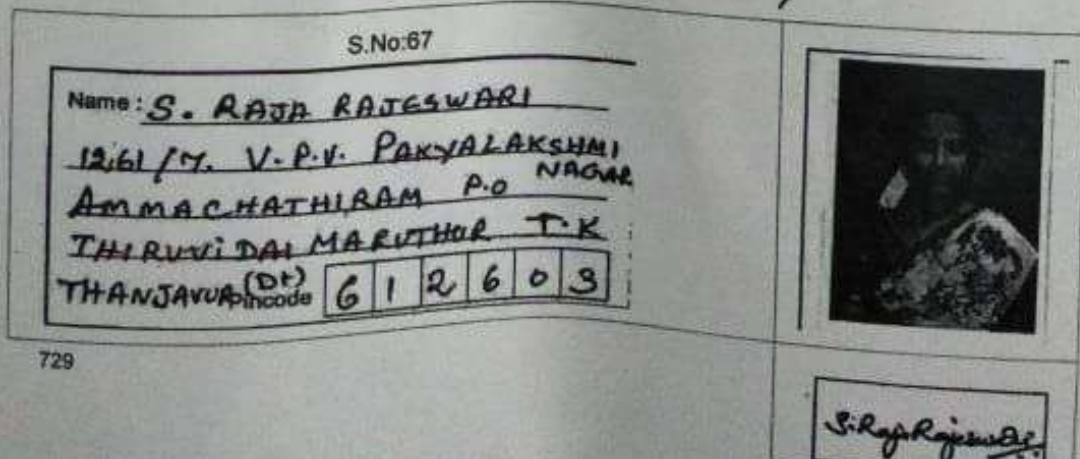 S.No:67
Name: S. RAJA RAJESWARI
12,61/7. V.P.V. PAKYALAKSHMI
NAGAR
AMMACHATHIRAM P.O
THIRUVIDAI MARUTHUR T.K
THANJAVUR (Dt) Pincode 612603
729
S.RajaRajeswari